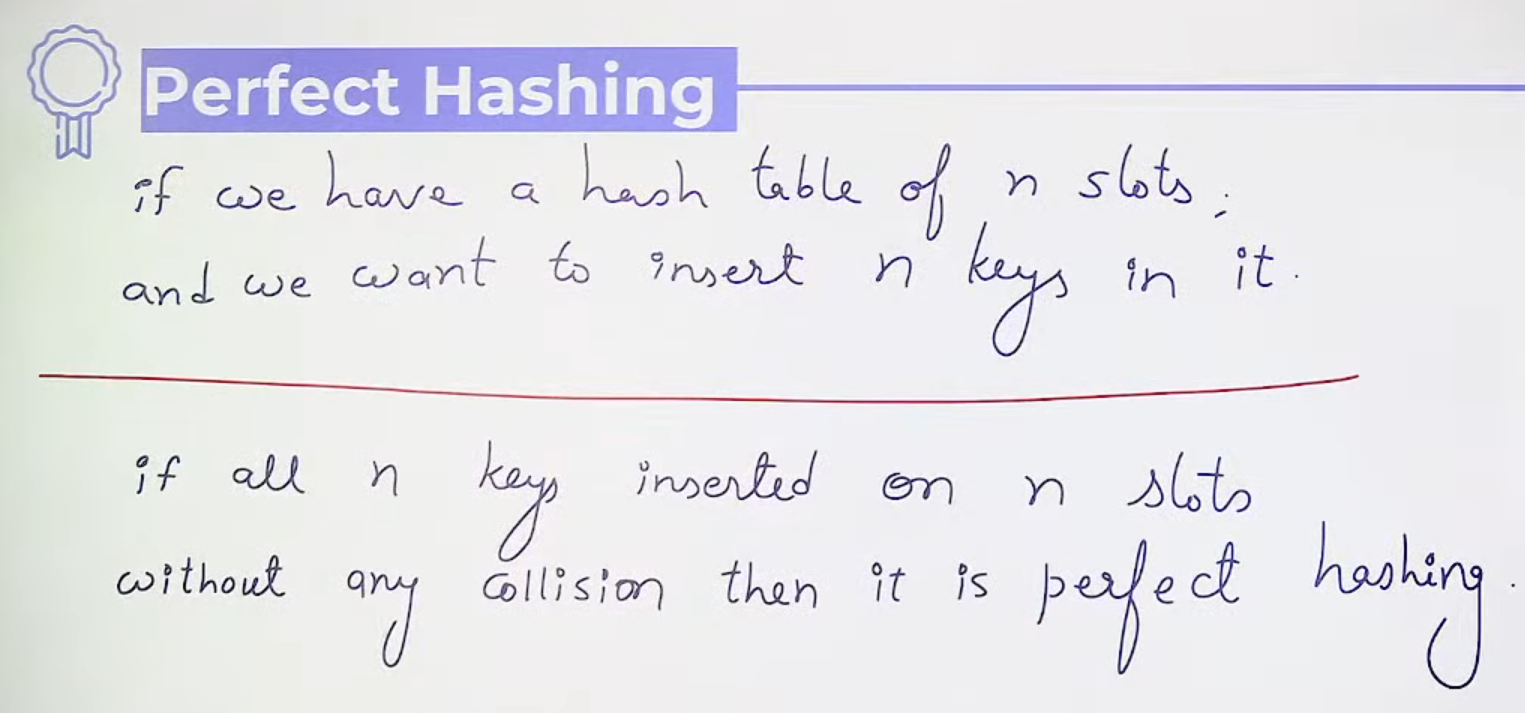 Perfect Hashing
if we have a hash table of n slots.
and we want to insert n keys in it.
if all n keys inserted on n slots
without any collision then it is perfect hashing.